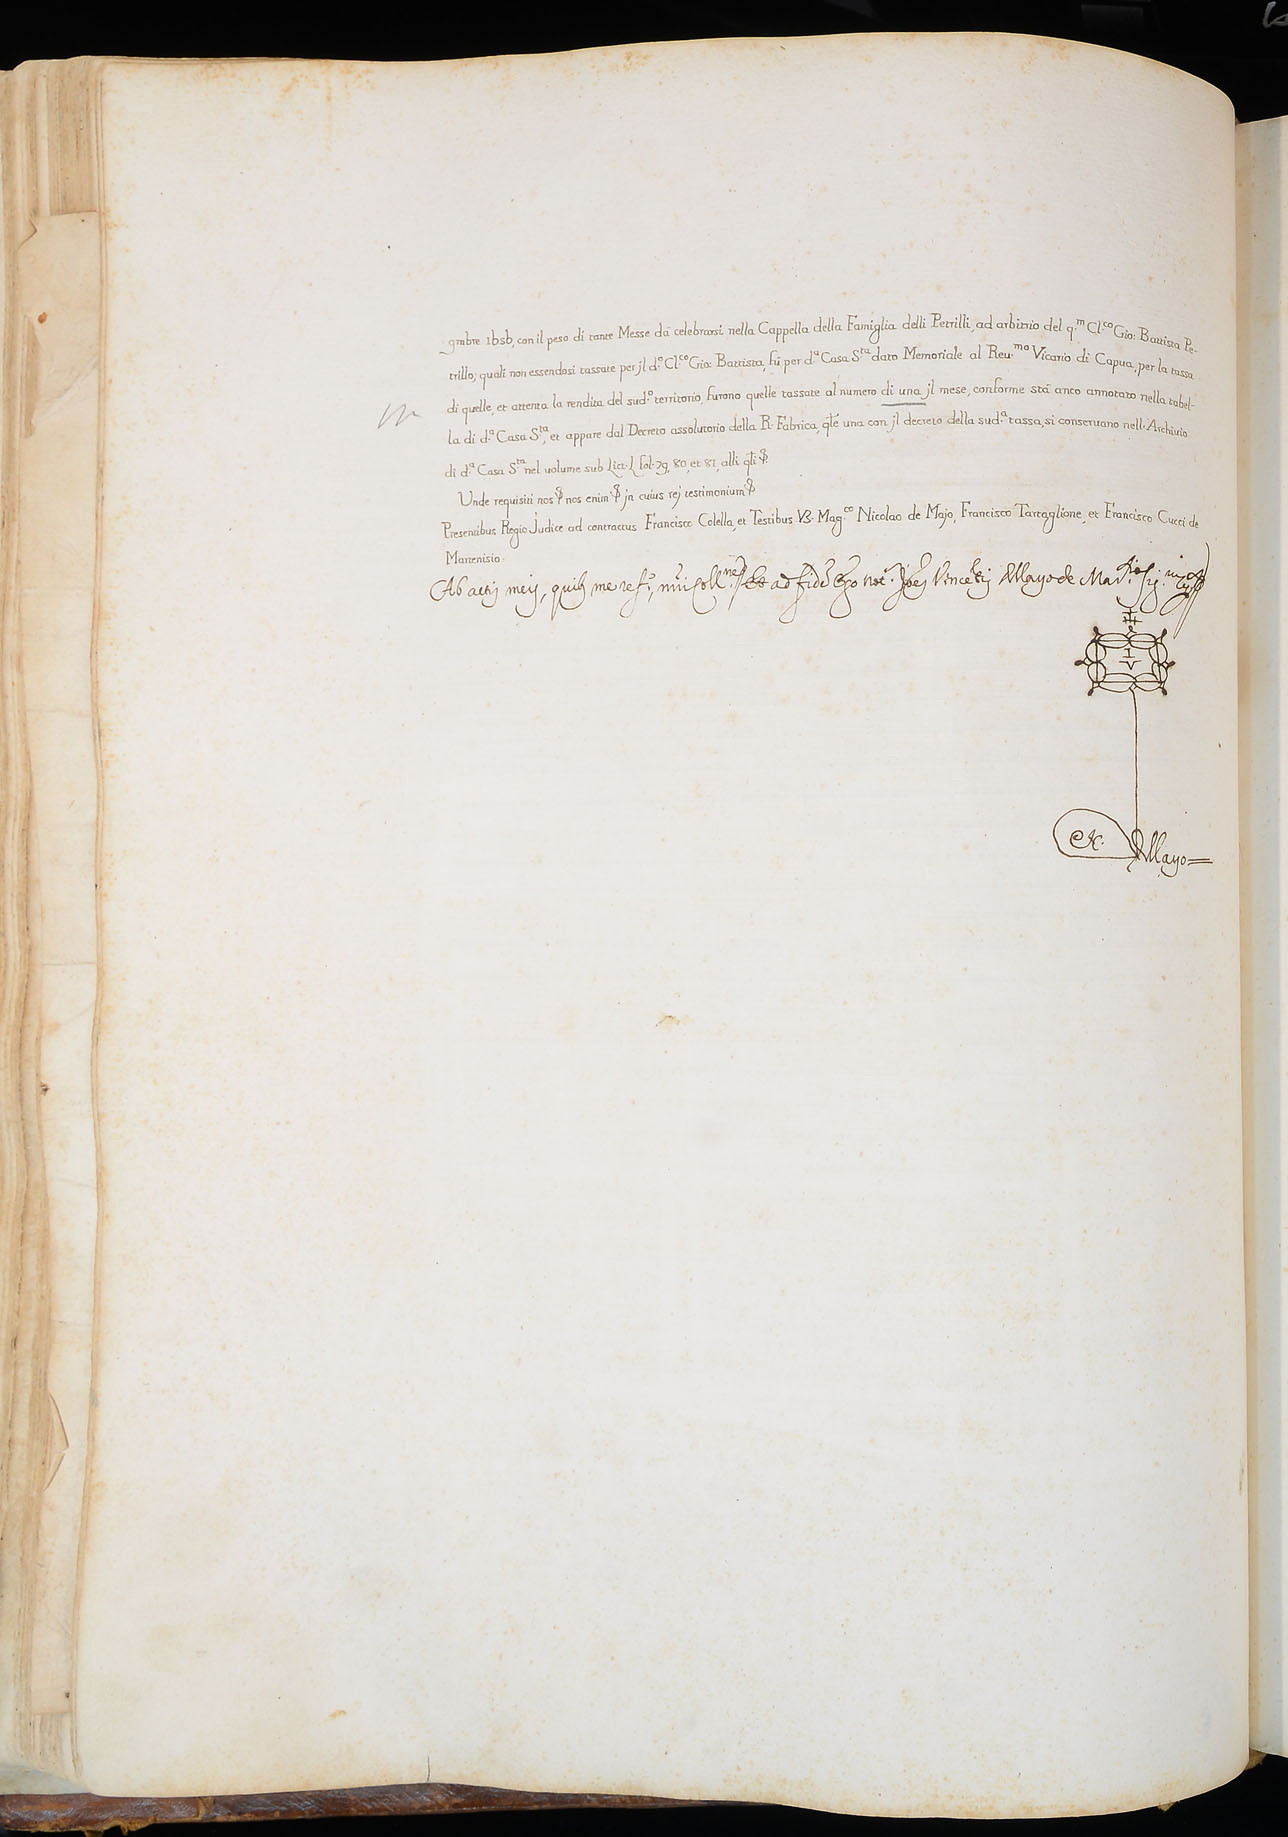 9mbre 1656, con il peso di tante Messe da celebrarsi nella Cappella della Famiglia delli Petrilli, ad arbitrio del q.m Cl.co Gio: Battista Pe-
trillo; quali non essendosi tassate per jl d.o Cl.co Gio: Battista, fù per d.a Casa S.ta dato Memoriale al Reu.mo Vicario di Capua, per la tassa
di quelle, et attenta la rendita del sud.o territorio, furono quelle tassate al numero di una jl mese, conforme stà anco annotato nella tabel-
la di d.a Casa S.ta, et appare dal Decreto assolutorio della R. Fabrica, qle una con jl decreto della sud.a tassa, si conseruano nell'Archiuio
di d.a Casa S.ta nel uolume sub Litt. L fol. 79, 80, et 81, alli qli
Unde requisiti nos nos enim jn cuius rej testimonium
Presentibus Regio Judice ad contractus Francisco Colella, et Testibus V3. Mag.co Nicolao de Majo, Francisco Tartaglione, et Francisco Cucci de
Martenisio.
Ab actis meis, quib me ref, coll.ne et ad fidem Ego not.
I V
Mayo